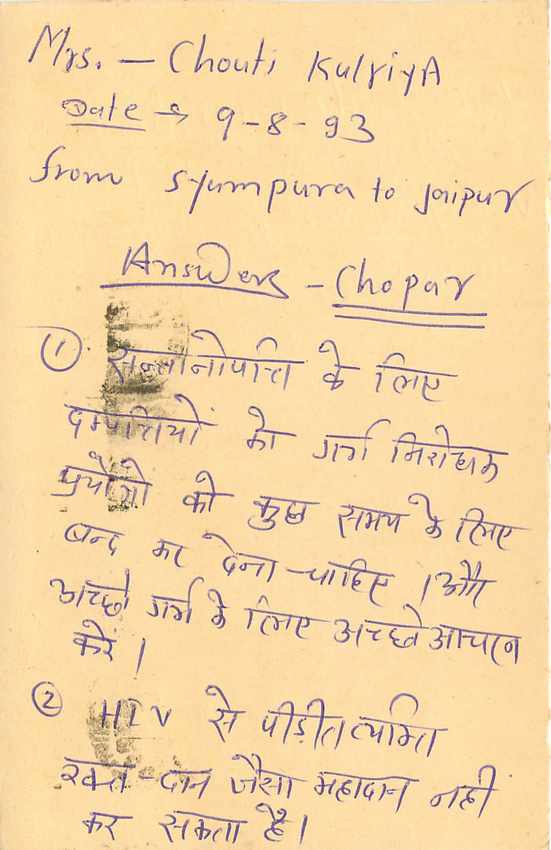 Mrs. — Chouti KulriyA
Date → 9-8-93
from syampura to jaipur
Answers - Chopar
① सन्तानोपत्ति के लिए
दम्पत्तियों को गर्भ निरोधक
प्रयोगो को कुछ समय के लिए
बन्द कर देना चाहिए । और
अच्छे गर्भ के लिए अच्छे आचरन
करें ।
② HIV से पीड़ीत व्यक्ति
रक्त-दान जैसा महादान नही
कर सकता है।